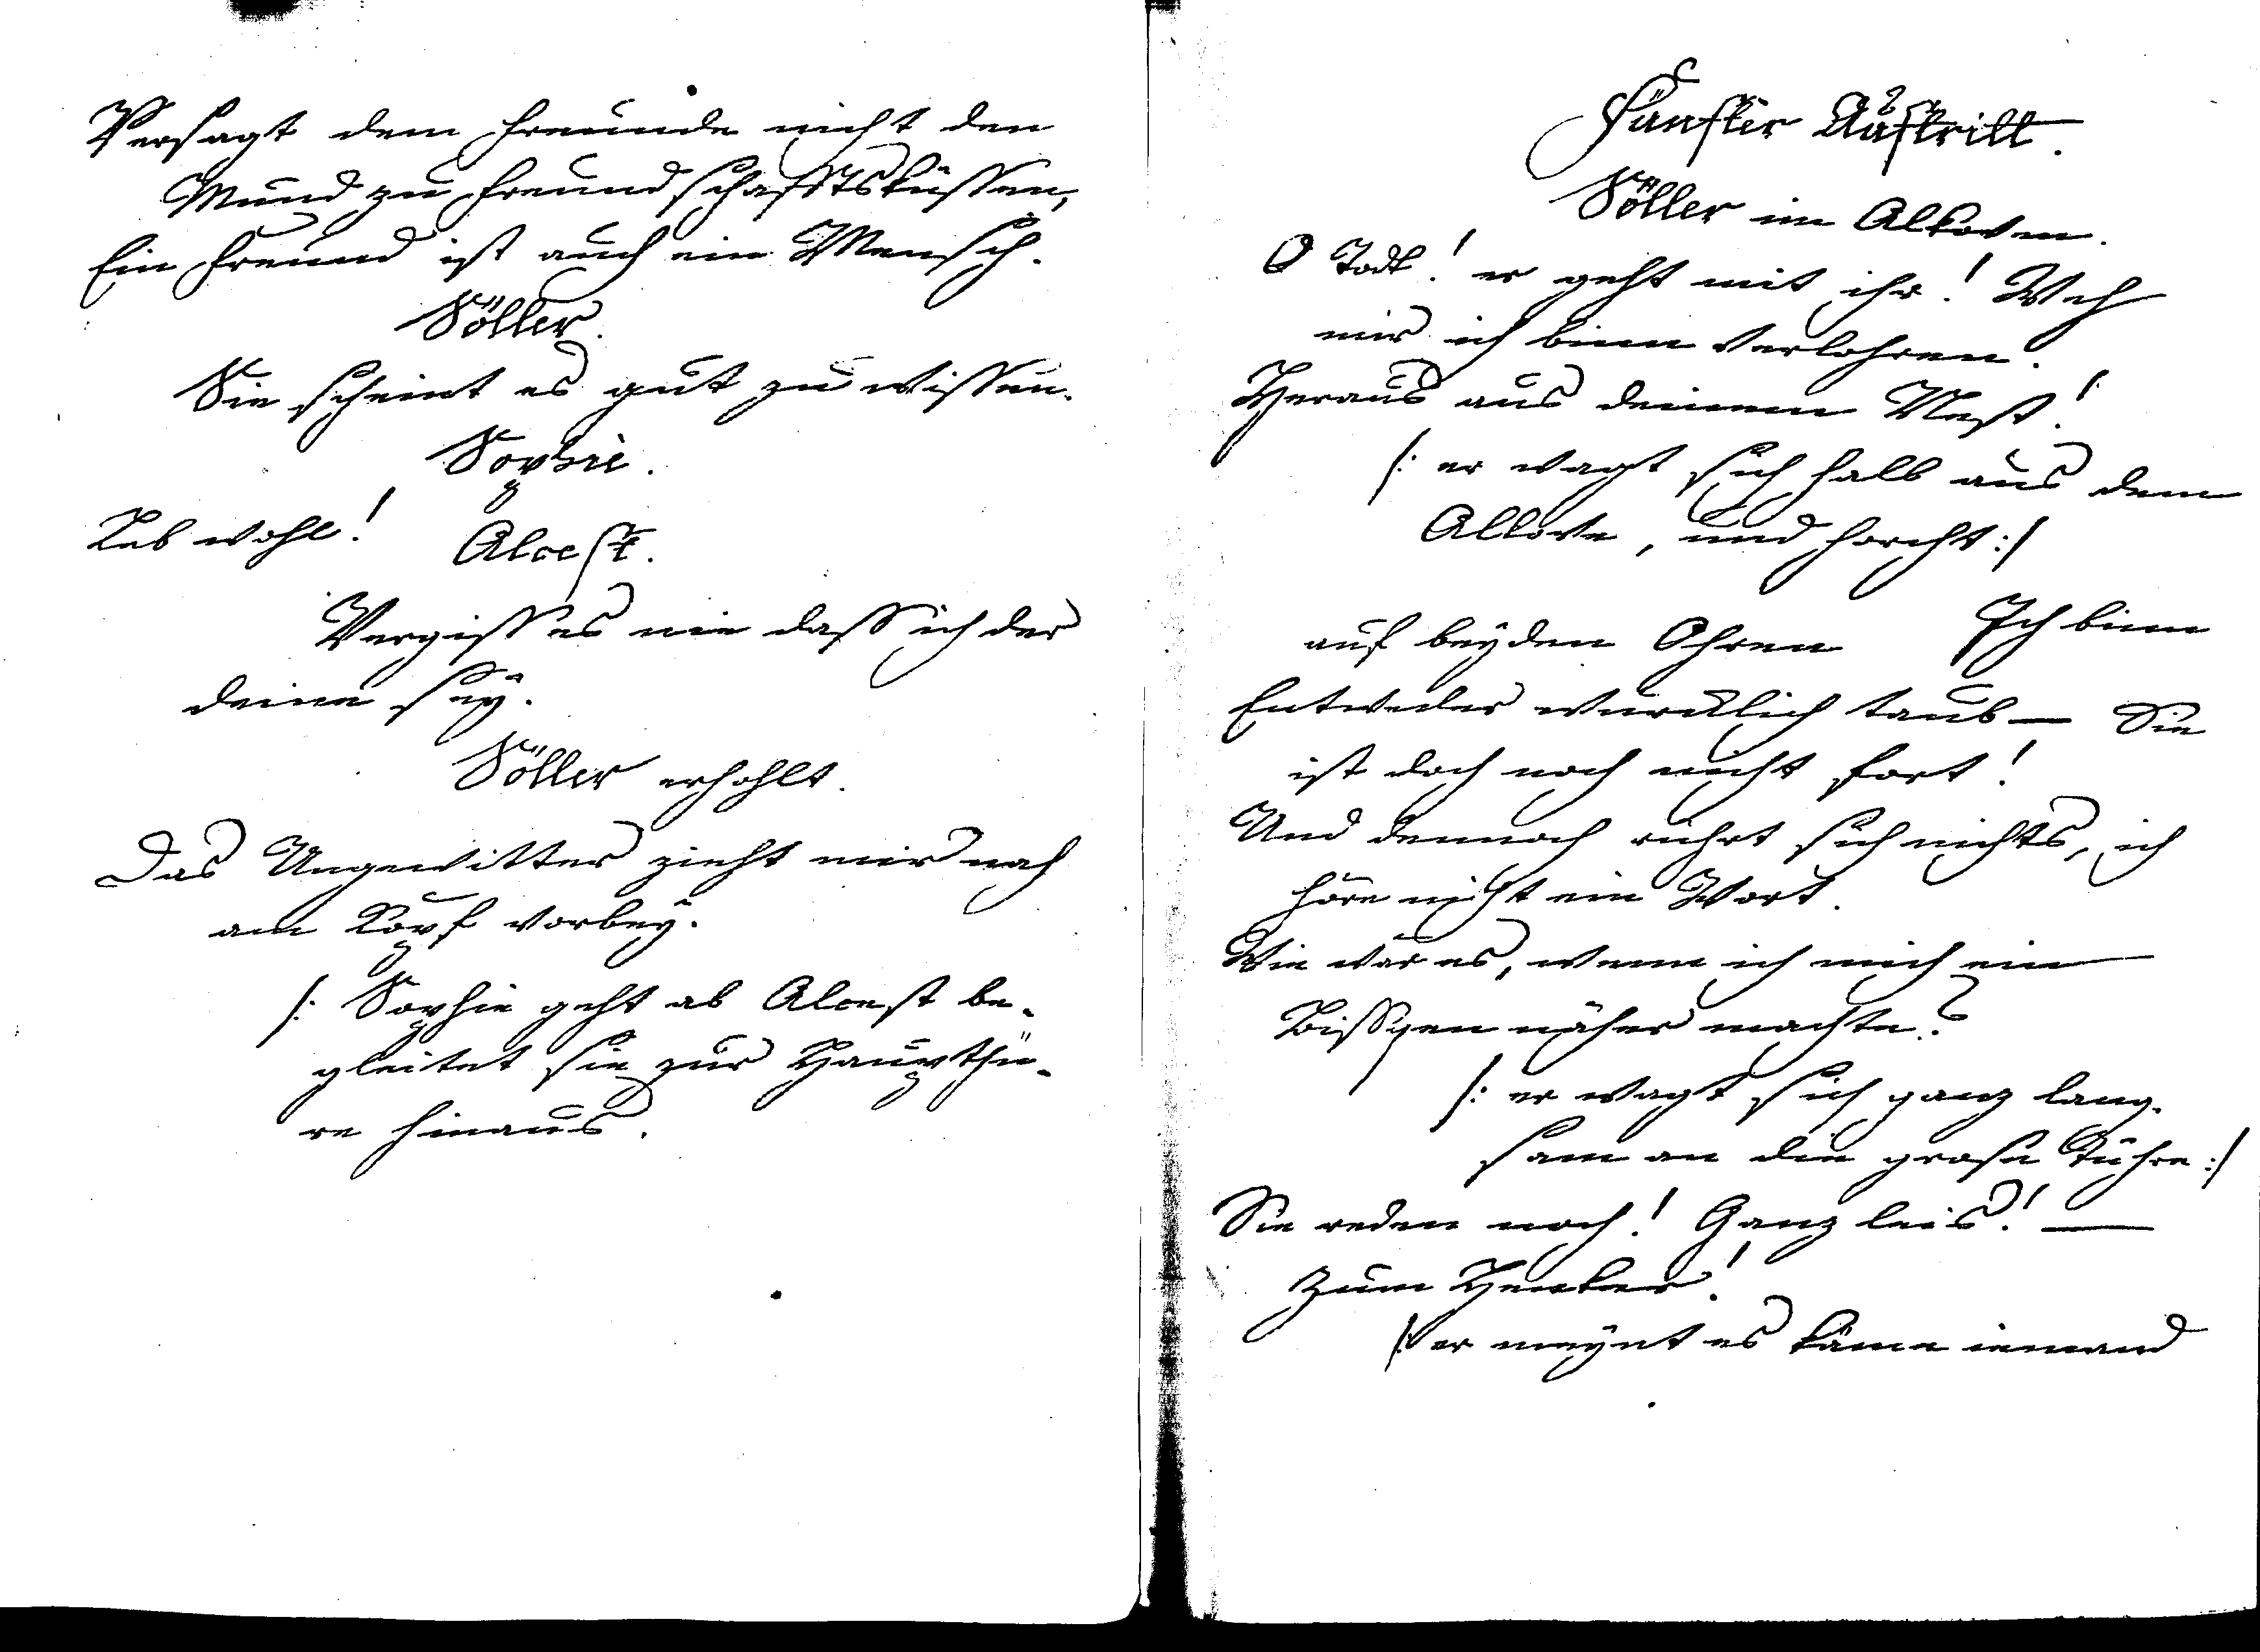 Versagt dem Freunde nicht den
Mund zu Freundschafftsküssen,
Ein Freund ist auch ein Mensch.
Söller.
Sie scheint es gut zu wissen.
Sophie.
Leb wohl!
Alcest.
Vergiss es nie dass ich der
deine sey.
Söller erhohlt.
Das Ungewitter zieht mir nah
am Kopf vorbey.
/: Sophie geht ab Alcest be-
gleitet sie zur Haupthü-
re hinaus.
Fünfter Auftritt.
Söller im Alkoven.
O Todt! er geht mit ihr! Weh
mir ich binn verlohren.
Heraus aus deinem Nest!
/: er wagt sich halb aus dem
Alkove, und horcht :/
Ich binn
auf beyden Ohren
Entweder würcklich taub — Sie
ist doch noch nicht fort!
Und dennoch rührt sich nichts, ich
höre nicht ein Wort.
Wie wär es, wenn ich mich ein
Bissgen näher machte?
/: er wagt sich ganz lang-
sam an die grose Tühre :/
Sie reden noch! Ganz leis! —
Zum Hencker!
/: er meynt es käme iemand